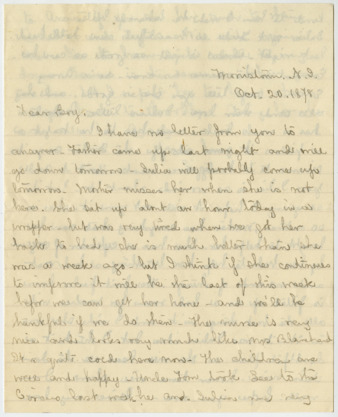 Morristown, N.J.
Oct. 20. 1878.
Dear Boy:
I have no letter from you to
answer. Father came up last night and will
go down tomorrow - Julia will probably come up
tomorrow. Mother misses her when she is not
here. She set up about an hour today in a
wrapper - but was very tired when we got her
back to bed. She is much better than she
was a week ago - but I think if she continues
to improve it will be the last of this week
before we can get her home - and we'll be
thankful if we do then. The nurse is very
nice and looks very much like Mrs.
It is quite cold here now. The children are
well and happy. Uncle Tom took Sue to the
last week, he and very